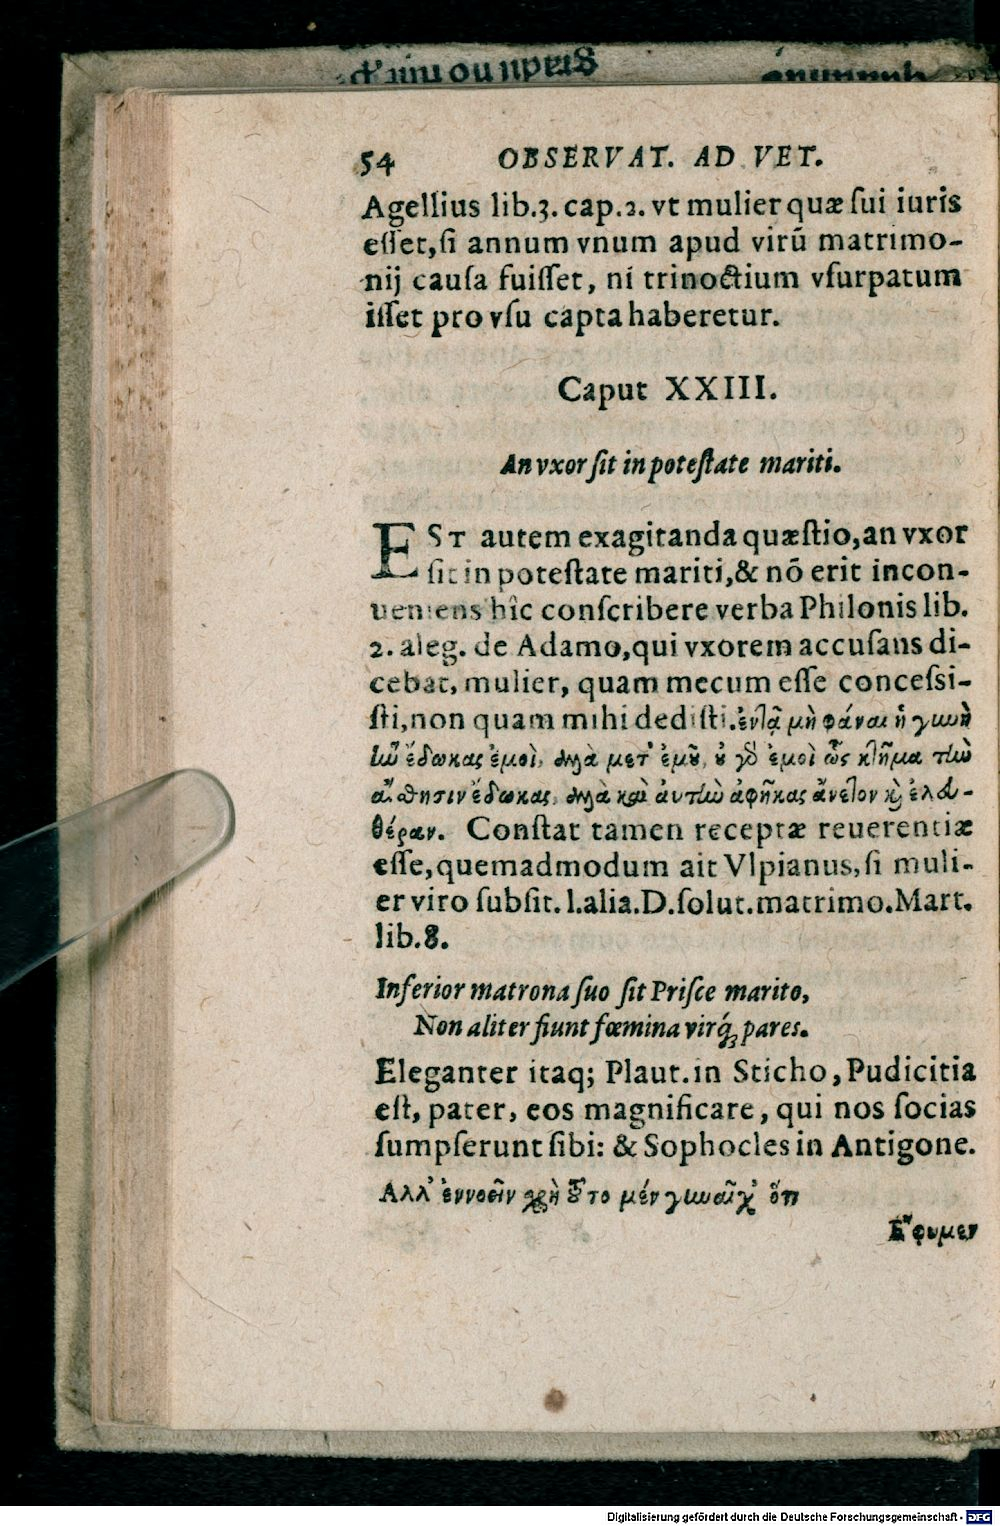 54 OBSERVAT. AD VET.
Agellius lib.3. cap.2. vt mulier quæ ſui iuris
eſſet, ſi annum vnum apud virū matrimo-
nij cauſa fuiſſet, ni trinoctium vſurpatum
iſſet pro vſu capta haberetur.
Caput XXIII.
An vxor ſit in poteſtate mariti.
EST autem exagitanda quæſtio, an vxor
ſit in poteſtate mariti, & nō erit incon-
ueniens hîc conſcribere verba Philonis lib.
2. aleg. de Adamo, qui vxorem accuſans di-
cebat, mulier, quam mecum eſſe conceſſi-
ſti, non quam mihi dediſti. μὴ φάναι ἡ γυνὴ
ἣν ἔδωκας ἐμοὶ, ἀλλὰ μετ' ἐμοῦ, οὐ γὰρ ἐμοὶ ὡς κτῆμα τὴν
αἴσθησιν ἔδωκας, ἀλλὰ καὶ ἀυτὴν ἀφῆκας ἄνετον καὶ ἐλευ-
θέραν. Conſtat tamen receptæ reuerentiæ
eſſe, quemadmodum ait Vlpianus, ſi muli-
er viro ſubſit. l.alia.D.ſolut.matrimo.Mart.
lib.8.
Inferior matrona ſuo ſit Priſce marito,
Non aliter fiunt fœmina virq́; pares.
Eleganter itaq; Plaut. in Sticho, Pudicitia
eſt, pater, eos magnificare, qui nos ſocias
ſumpſerunt ſibi: & Sophocles in Antigone.
Αλλ' ἐννοεῖν χρὴ τοῦτο μέν γυναῖχ' ὅτι
Ε῎φυμεν
Digitalisierung gefördert durch die Deutsche Forschungsgemeinschaft - DFG